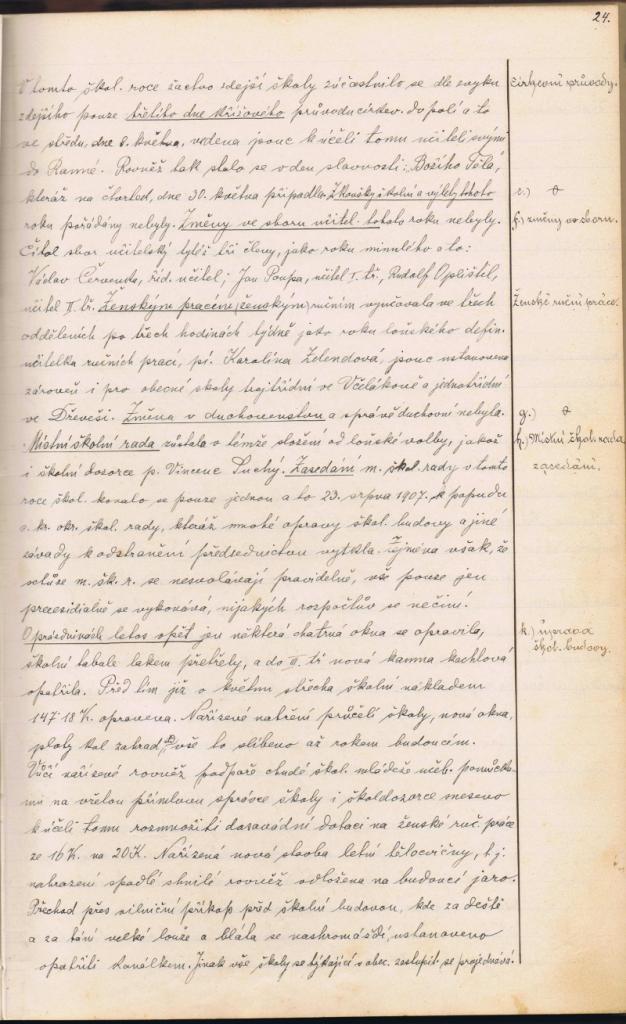 24.
V tomto škol. roce žactvo zdejší školy zúčastnilo se dle zvyku
církevní průvody.
zdejšího pouze třetího dne křížového průvodu církev. do polí a to
ve středu, dne 8. května, vedena jsouc k účeli tomu učiteli svými
do Ranné. Rovněž tak stalo se v den slavnosti: "Božího Těla",
kteráž na čtvrtek, dne 30. května připadla. Zkoušky školní a výlety tohoto
e.)
roku pořádány nebyly. Změny ve sboru učitel. tohoto roku nebyly.
f.) změny ve sboru.
Čítal sbor učitelský tytéž tři členy, jako roku minulého a to:
Václav Červenka, říd. učitel; Jan Poupa, učitel I. tř., Rudolf Oplištil,
učitel II. tř. Ženským pracím (ženským) ručním vyučovala ve třech
Ženské ruční práce.
odděleních po třech hodinách týdně jako roku loňského defin.
učitelka ručních prací, pí. Karolína Zelendová, jsouc ustanovena
zároveň i pro obecné školy trojtřídní ve Včelákově a jednotřídní
ve Dřevěši. Změna v duchovenstvu a správě duchovní nebyla.
g.)
Místní školní rada zůstala v témže složení od loňské volby, jakož
h.) Místní škol. rada
i školní dozorce p. Vincenc Suchý. Zasedání m. škol. rady v tomto
zasedání.
roce škol. konalo se pouze jednou a to 23. srpna 1907. k popudu
c. kr. okr. škol. rady, kteráž mnohé opravy škol. budovy a jiné
závady k odstranění předsednictvu vytkla. Zejména však, že
schůze m. šk. r. se nesvolávají pravidelně, vše pouze jen
presesidialně se vykonává, nijakých rozpočtův se nečiní.
O prázdninách letos opět jen některá chatrná okna se opravila,
k.) úprava
školní tabule lakem přetřely, a do II. tř nová kamna kachlová
škol. budovy.
opatřila. Před tím již v květnu střecha školní nákladem
147·18 K. opravena. Nařízené natření průčelí školy, nová okna,
ploty kol zahrad, vše to slíbeno až rokem budoucím.
Vůči nařízené rovněž podpoře chudé škol. mládeže učeb. pomůcka-
mi na vřelou přímluvu správce školy i škol dozorce sneseno
k účeli tomu rozmnožiti dosavádní dotaci na ženské ruč. práce
ze 16 K. na 20 K. Nařízená nová stavba letní tělocvičny, t. j.
nahrazení spadlé shnilé rovněž odložena na budoucí jaro.
Přechod přes silniční příkop před školní budovou, kde za deště
a za tání velké louže a bláta se nashromáždí, ustanoveno
opatřiti kanálkem. Jinak vše školy se týkající v obec. zastupit. se projednává.